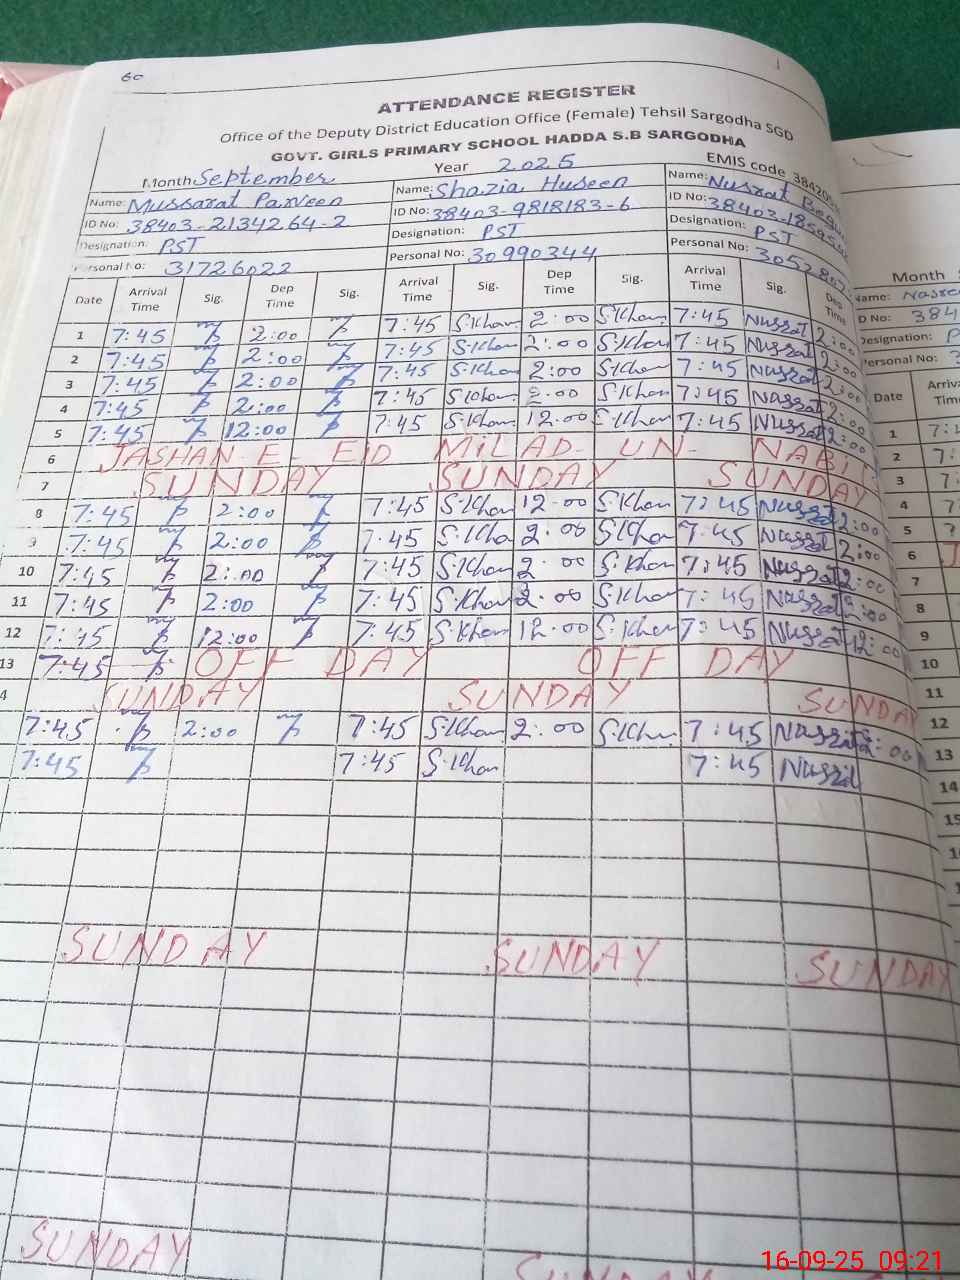 60
ATTENDANCE REGISTER
Office of the Deputy District Education Office (Female) Tehsil Sargodha SGD
GOVT. GIRLS PRIMARY SCHOOL HADDA S.B SARGODHA
Month September Year 2025 EMIS code 384205
Name: Mussarat Parveen Name: Shazia Huseen Name: Nusrat
ID No: 38403-2134264-2 ID No: 38403-9818183-6 ID No: 38403-18595
Designation: PST Designation: PST Designation: PST
Personal No: 31726022 Personal No: 30990344 Personal No: 3052802
Date Arrival Time Sig. Dep Time Sig. Arrival Time Sig. Dep Time Sig. Arrival Time Sig. Dep Time
1 7:45 2:00 7:45 S.Khan 2:00 S.Khan 7:45 Nussat 2:00
2 7:45 2:00 7:45 S.Khan 2:00 S.Khan 7:45 Nussat 2:00
3 7:45 2:00 7:45 S.Khan 2:00 S.Khan 7:45 Nussat 2:00
4 7:45 2:00 7:45 S.Khan 2:00 S.Khan 7:45 Nussat 2:00
5 7:45 12:00 7:45 S.Khan 12:00 S.Khan 7:45 Nussat 12:00
6 JASHAN-E-EID MILAD-UN-NABI
7 SUNDAY SUNDAY SUNDAY
8 7:45 2:00 7:45 S.Khan 12:00 S.Khan 7:45 Nussat 2:00
9 7:45 2:00 7:45 S.Kha 2:00 S.Khan 7:45 Nussat 2:00
10 7:45 7:45 S.Khan 2:00 S.Khan 7:45 Nussat 2:00
11 7:45 2:00 7:45 S.Khan 2:00 S.Khan 7:45 Nussat 2:00
12 7:45 12:00 7:45 S.Khan 12:00 S.Khan 7:45 Nussat 12:00
13 7:45 OFF DAY OFF DAY
4 SUNDAY SUNDAY SUNDAY
7:45 2:00 7:45 S.Khan 2:00 S.Khan 7:45 Nussat 2:00
7:45 7:45 S.Khan 7:45 Nussat
SUNDAY SUNDAY SUNDAY
SUNDAY SUNDAY
Month
Name:
ID No: 384
Designation:
Personal No:
Date
1
2
3
4
5
6
7
8
9
10
11
12
13
14
16-09-25 09:21